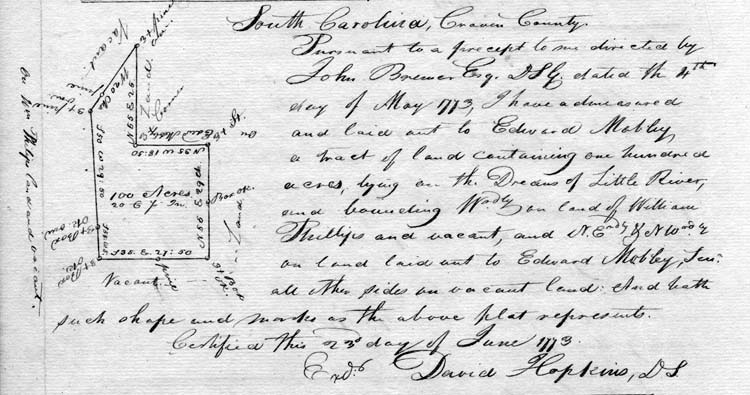 South Carolina, Craven County.
Pursuant to a precept to me directed by
John Bremer Esq. D.S.G. dated the 4th
day of May 1773, I have admeasured
and laid out to Edward Mobley,
a tract of land containing one hundred
acres, lying on the Dreans of Little River,
and bounding Wrdly on land of William
Phillips and vacant, and N.Erdly & N.Wrdly
on land laid out to Edward Mobley, Jun.
all other sides on vacant land: And hath
such shape and marks as the above plat represents.
Certified this 23d day of June 1773.
Exd. David Hopkins, D.S.
Vacant
Land
Corner
S35 W 18:50
100 Acres
S35 E 27:50
Vacant
Land
On Wm Philips land and vacant.